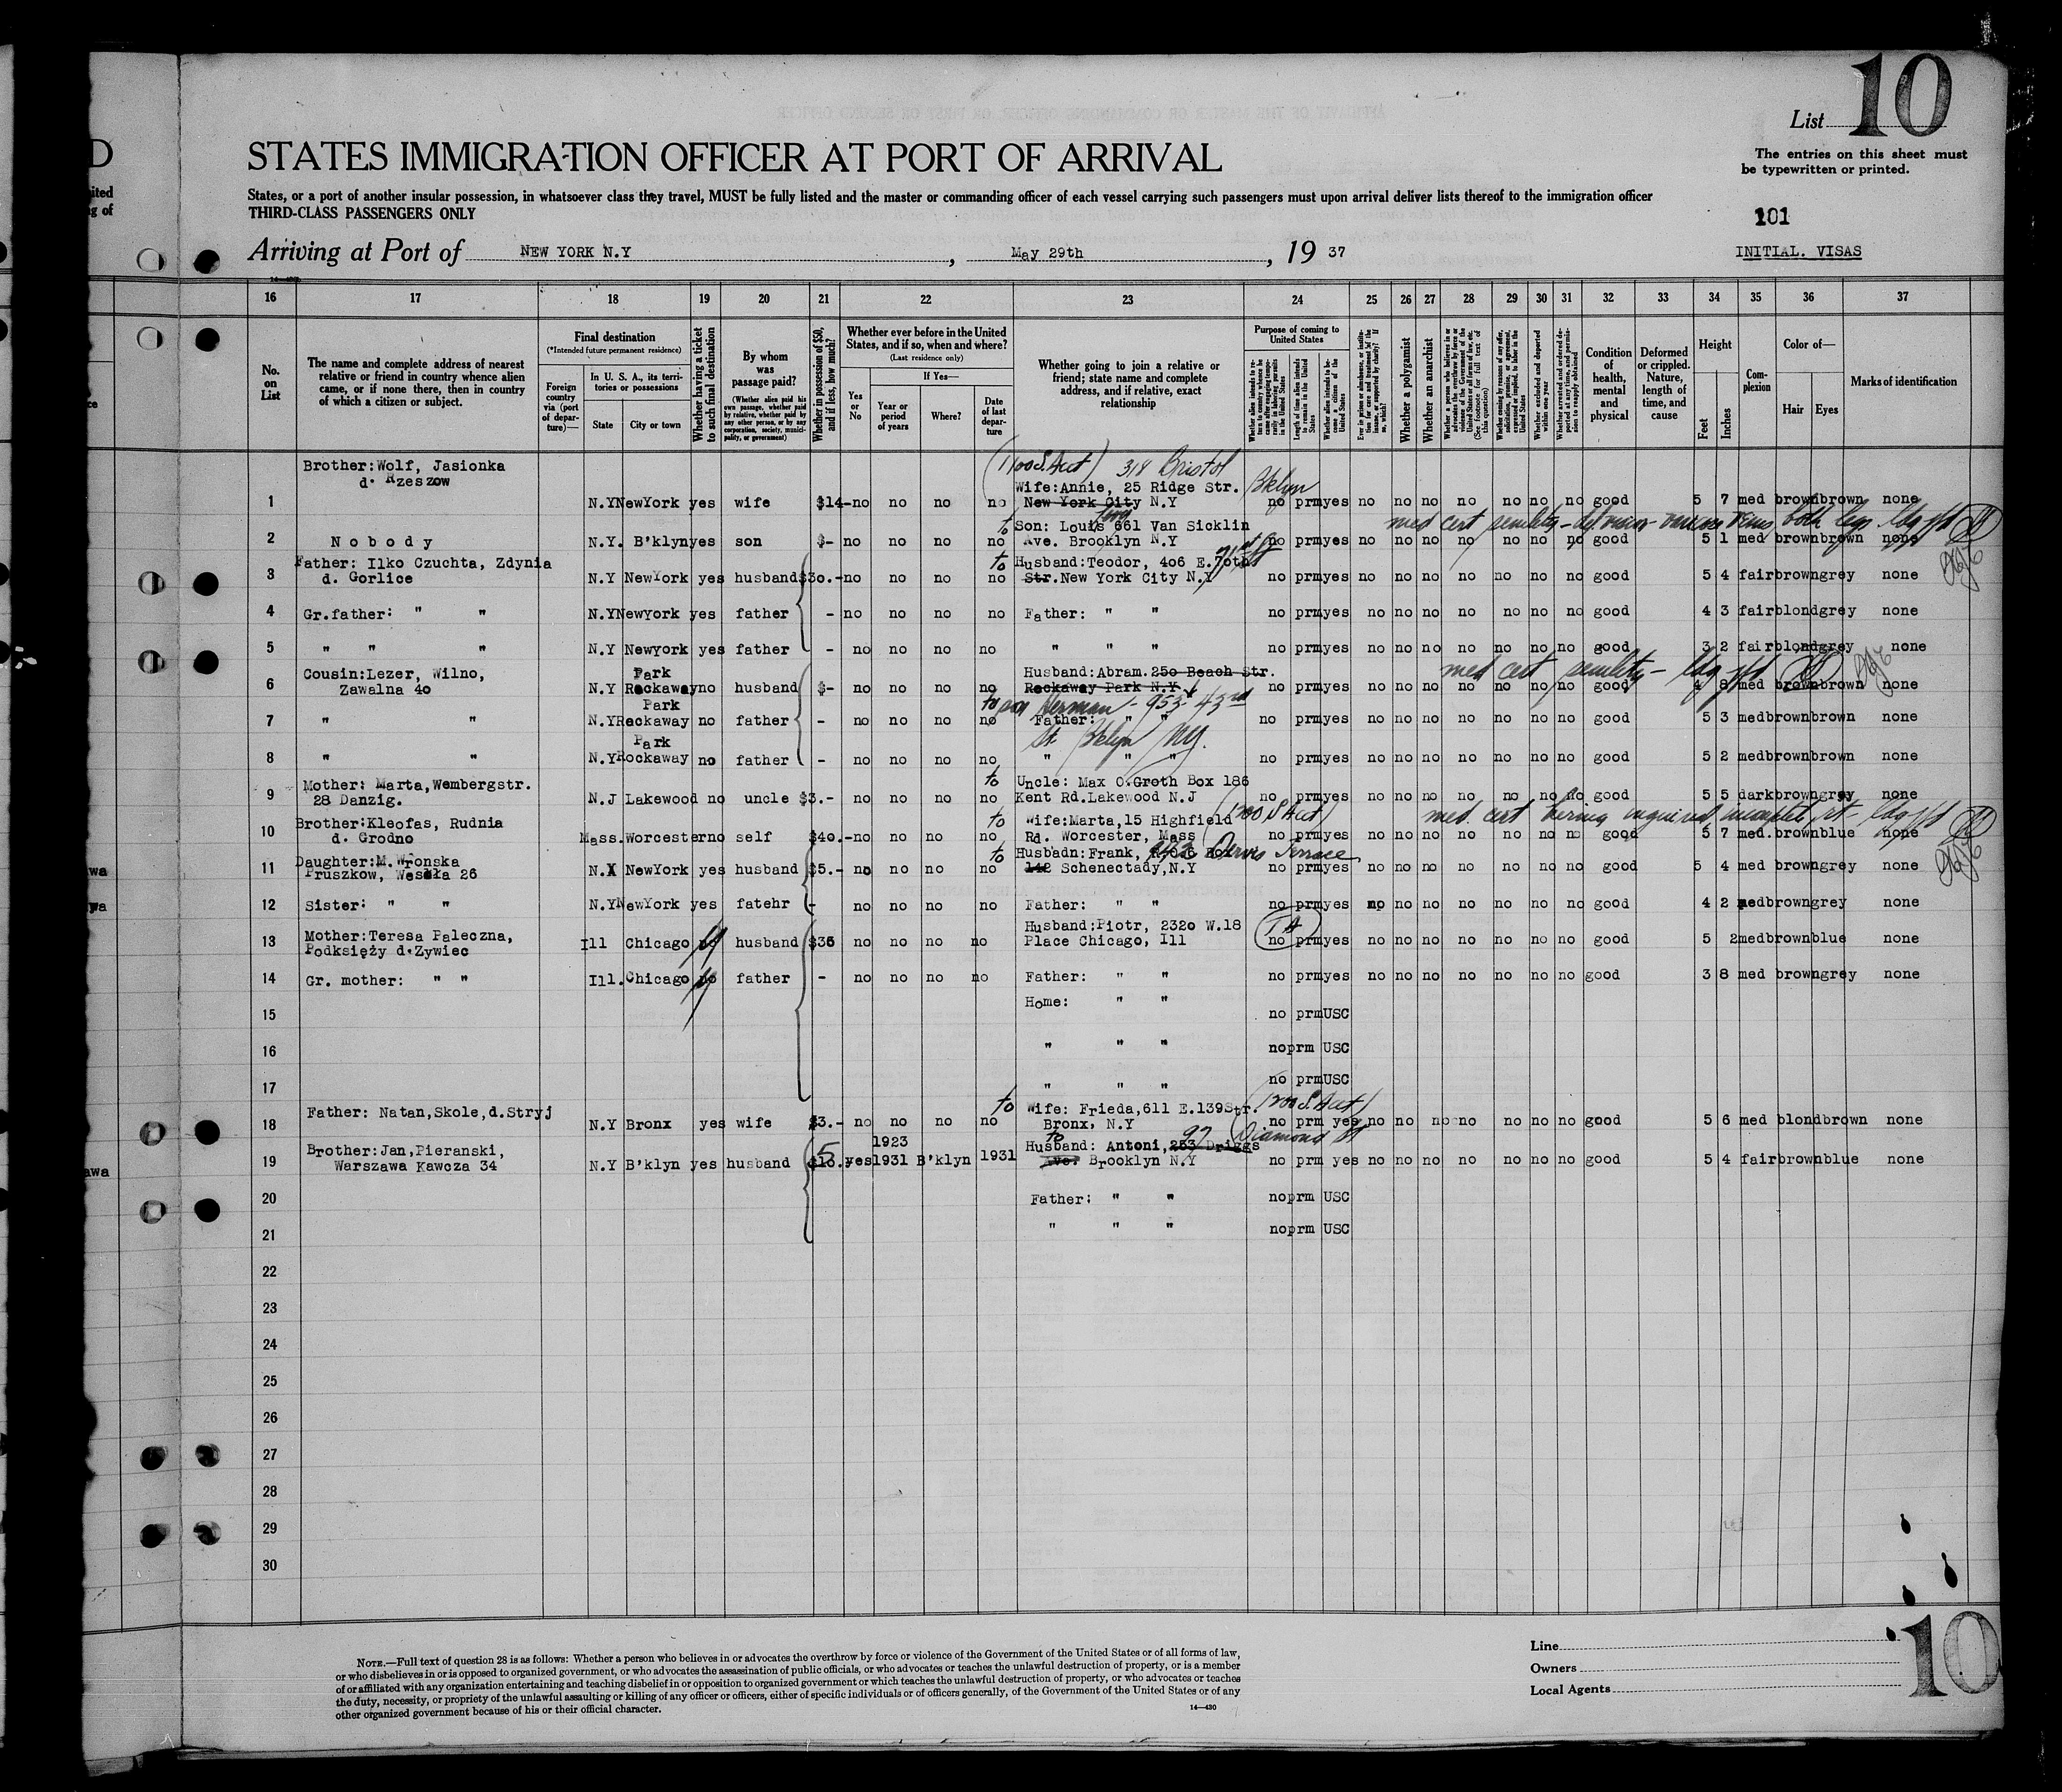 D
ited
g of
ce
wa
wa
awa
List 10
The entries on this sheet must
be typewritten or printed.
STATES IMMIGRATION OFFICER AT PORT OF ARRIVAL
States, or a port of another insular possession, in whatsoever class they travel, MUST be fully listed and the master or commanding officer of each vessel carrying such passengers must upon arrival deliver lists thereof to the immigration officer
THIRD-CLASS PASSENGERS ONLY
101
Arriving at Port of NEW YORK N.Y , May 29th , 19 37
INITIAL. VISAS
16 17 18 19 20 21 22 23 24 25 26 27 28 29 30 31 32 33 34 35 36 37
No. on List
The name and complete address of nearest relative or friend in country whence alien came, or if none there, then in country of which a citizen or subject.
Final destination
(*Intended future permanent residence)
Foreign country via (port of departure)—
In U. S. A., its territories or possessions
State City or town
Whether having a ticket to such final destination
By whom was passage paid?
(Whether alien paid his own passage, whether paid by relative, whether paid by any other person, or by any corporation, society, municipality, or government)
Whether in possession of $50, and if less, how much?
Whether ever before in the United States, and if so, when and where?
(Last residence only)
If Yes—
Yes or No
Year or period of years
Where?
Date of last departure
Whether going to join a relative or friend; state name and complete address, and if relative, exact relationship
Purpose of coming to United States
Length of time alien intends to remain in the United States
Whether alien intends to become a citizen of the United States
Whether a polygamist
Whether an anarchist
Condition of health, mental and physical
Deformed or crippled. Nature, length of time, and cause
Height
Feet Inches
Complexion
Color of—
Hair Eyes
Marks of identification
Brother:Wolf, Jasionka (1700 S.Act) 318 Bristol
d. Rzeszow Wife:Annie, 25 Ridge Str. Bklyn
1 N.Y NewYork yes wife $14- no no no no New York City N.Y no prm yes no no no no no no no good 5 7 med brown brown none
to Son: Louis 661 Van Sicklin med cert senility - both legs
2 Nobody N.Y. B'klyn yes son $- no no no no Ave. Brooklyn N.Y no prm yes no no no no no no no good 5 1 med brown brown none
Father: Ilko Czuchta, Zdynia to Husband:Teodor, 406 E.70th
3 d. Gorlice N.Y NewYork yes husband $30.- no no no no Str.New York City N.Y no prm yes no no no no no no no good 5 4 fair brown grey none
4 Gr.father: " " N.Y Newyork yes father - no no no no Father: " " no prm yes no no no no no no no good 4 3 fair blond grey none
5 " " " N.Y Newyork yes father - no no no no " " " no prm yes no no no no no no no good 3 2 fair blond grey none
Cousin:Lezer, Wilno, Park Husband:Abram.250 Beach Str. med cert senility -
6 Zawalna 40 N.Y Rockaway no husband $- no no no no Rockaway Park N.Y. no prm yes no no no no no no no good 4 8 med brown brown none
Park to son Herman - 953- 43rd
7 " " N.Y Rockaway no father - no no no no Father: " " no prm yes no no no no no no no good 5 3 med brown brown none
Park St. Bklyn NY.
8 " " N.Y Rockaway no father - no no no no " " " no prm yes no no no no no no no good 5 2 med brown brown none
Mother: Marta,Wembergstr. to Uncle: Max O.Groth Box 186
9 28 Danzig. N.J Lakewood no uncle $3.- no no no no Kent Rd.Lakewood N.J no prm yes no no no no no no no good 5 5 dark brown grey none
Brother:Kleofas, Rudnia to Wife:Marta,15 Highfield (1700 S Act) med. cert
10 d. Grodno Mass. Worcester no self $40.- no no no no Rd. Worcester, Mass no prm yes no no no no no no no good 5 7 med. brown blue none
Daughter:M.Wronska to Husbadn:Frank, Terrace
11 Pruszkow, Wesola 26 N.Y NewYork yes husband $5.- no no no no 142 Schenectady,N.Y no prm yes no no no no no no no good 5 4 med brown grey none
12 Sister: " " N.Y NewYork yes fatehr - no no no no Father: " " no prm yes no no no no no no no good 4 2 med brown grey none
Mother:Teresa Paleczna, Husband:Piotr, 2320 W.18
13 Podksięży d.Zywiec Ill Chicago no husband $36 no no no no Place Chicago, Ill no prm yes no no no no no no no good 5 2 med brown blue none
14 Gr. mother: " " Ill. Chicago no father - no no no no Father: " " no prm yes no no no no no no no good 3 8 med brown grey none
15 Home: " " no prm USC
16 " " " no prm USC
17 " " " no prm USC
Father: Natan,Skole,d.Stryj to Wife: Frieda,611 E.139Str. (1700 S.Act)
18 N.Y Bronx yes wife $3.- no no no no Bronx, N.Y no prm yes no no no no no no no good 5 6 med blond brown none
Brother:Jan,Pieranski, 1923 to Husband: Antoni,253 Driggs 97 Diamond St
19 Warszawa Kawcza 34 N.Y B'klyn yes husband 5 yes 1931 B'klyn 1931 Ave. Brooklyn N.Y no prm yes no no no no no no no good 5 4 fair brown blue none
20 Father: " " no prm USC
21 " " " no prm USC
22
23
24
25
26
27
28
29
30
NOTE.—Full text of question 28 is as follows: Whether a person who believes in or advocates the overthrow by force or violence of the Government of the United States or of all forms of law,
or who disbelieves in or is opposed to organized government, or who advocates the assassination of public officials, or who advocates or teaches the unlawful destruction of property, or is a member
of or affiliated with any organization entertaining and teaching disbelief in or opposition to organized government or which teaches the unlawful destruction of property, or who advocates or teaches
the duty, necessity, or propriety of the unlawful assaulting or killing of any officer or officers, either of specific individuals or of officers generally, of the Government of the United States or of any
other organized government because of his or their official character.
14—430
Line
Owners
Local Agents
10